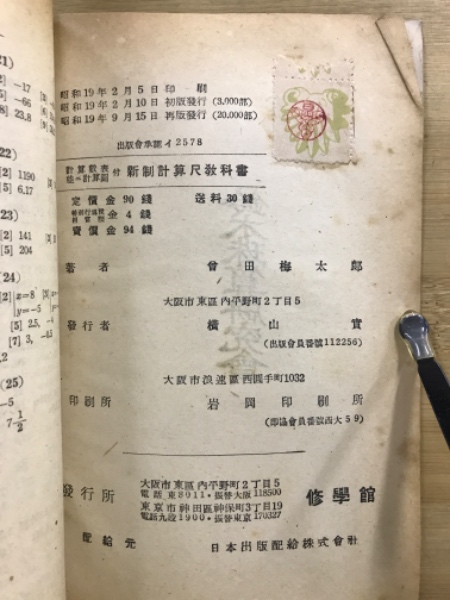 21)
[2] -17
[5] -66
[8] 23.8
22)
[2] 1190
[5] 6.17
(23)
[2] 141
[5] 204
(24)
[2] x=8
y=-5
[5] 2.5,
[7] 3,
(25)
-5
7 1/2
昭和19年2月5日 印刷
昭和19年2月10日 初版發行 (3,000部)
昭和19年9月15日 再版發行 (20,000部)
出版會承認イ2578
計算數表
付 新制計算尺敎科書
定價金90錢 送料30錢
金4錢
賣價金94錢
著者 曾田梅太郎
大阪市東區內平野町2丁目5
發行者 橫山實
(出版會員番號112256)
大阪市浪速區西圓手町1032
印刷所 岩岡印刷所
(印協會員番號西大59)
大阪市東區內平野町2丁目5
電話東8011・振替大阪118500
發行所 修學館
東京市神田區神保町3丁目19
電話九段1906・振替東京170327
配給元 日本出版配給株式會社